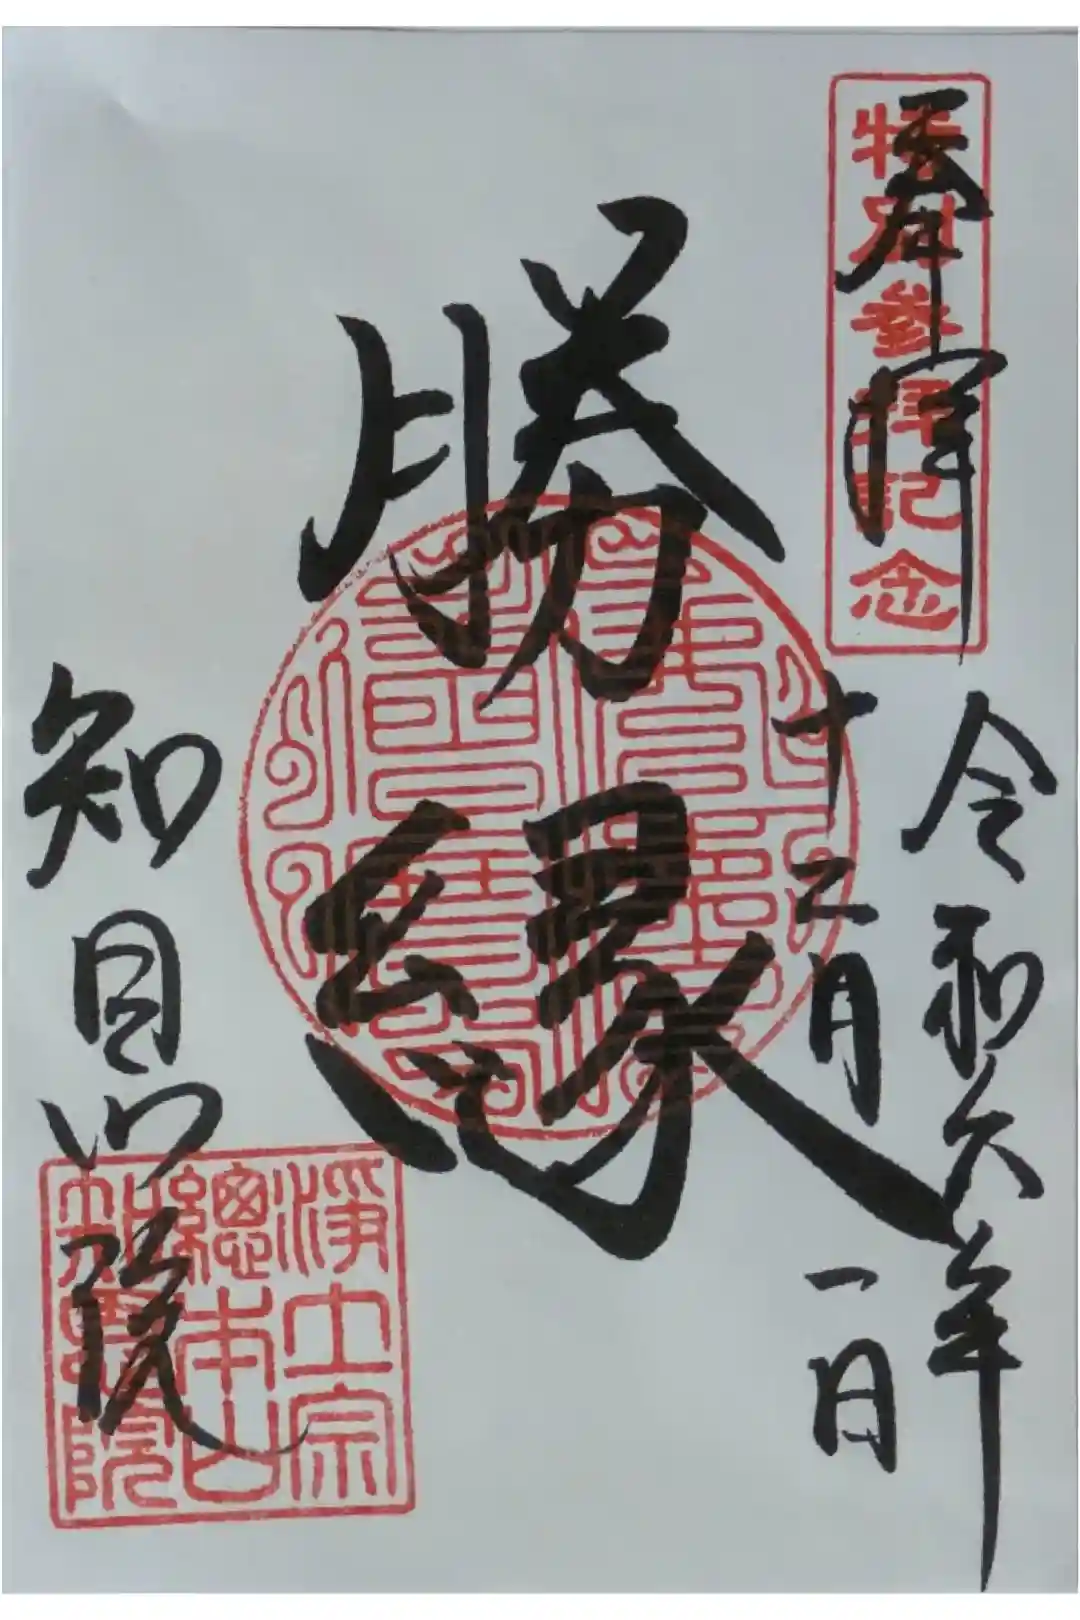 奉拝
特別参拝記念
令和六年
十二月一日
勝縁
知恩院
淨土宗
總本山
知恩院